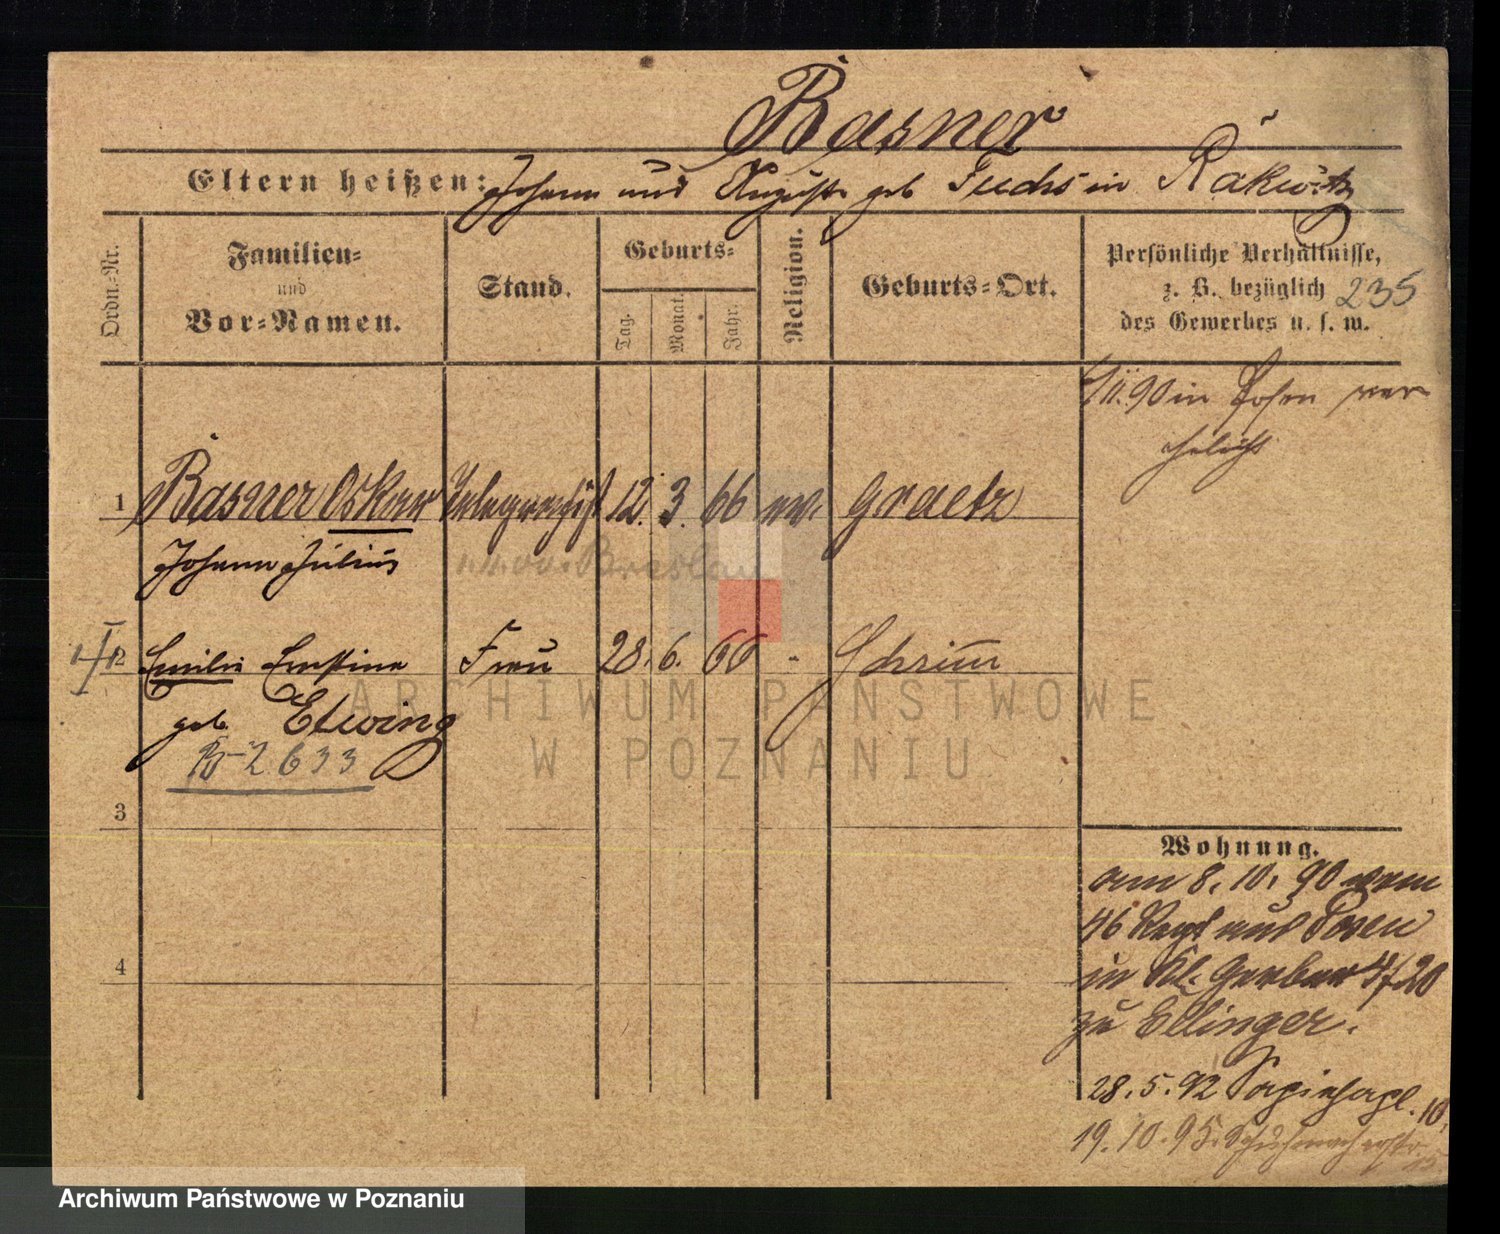 Basner
Eltern heißen: Johann und Auguste geb Fuchs in Rakwitz
Ordn.-Nr.
Familien-
und
Vor-Namen.
Stand.
Geburts-
Tag.
Monat.
Jahr.
Religion.
Geburts-Ort.
Persönliche Verhältnisse,
z. B. bezüglich 235
des Gewerbes u. s. w.
11.90 in Posen ver
ehelicht
1 Basner Oskar Telegraphist 12. 3. 66 ev. Graetz
Johann Julius
Breslau
2 Emilie Ernstine Frau 28. 6. 66 - Schrimm
geb. Elwing
2633
3
4
Wohnung.
am 8. 10. 90 vom
46 Regt aus Posen
in Kl. Gerber 4/20
zu Ellinger.
28. 5. 92 Sapiehapl. 10.
19. 10. 95. Schuhmacherstr.
ARCHIWUM PAŃSTWOWE
W POZNANIU
Archiwum Państwowe w Poznaniu